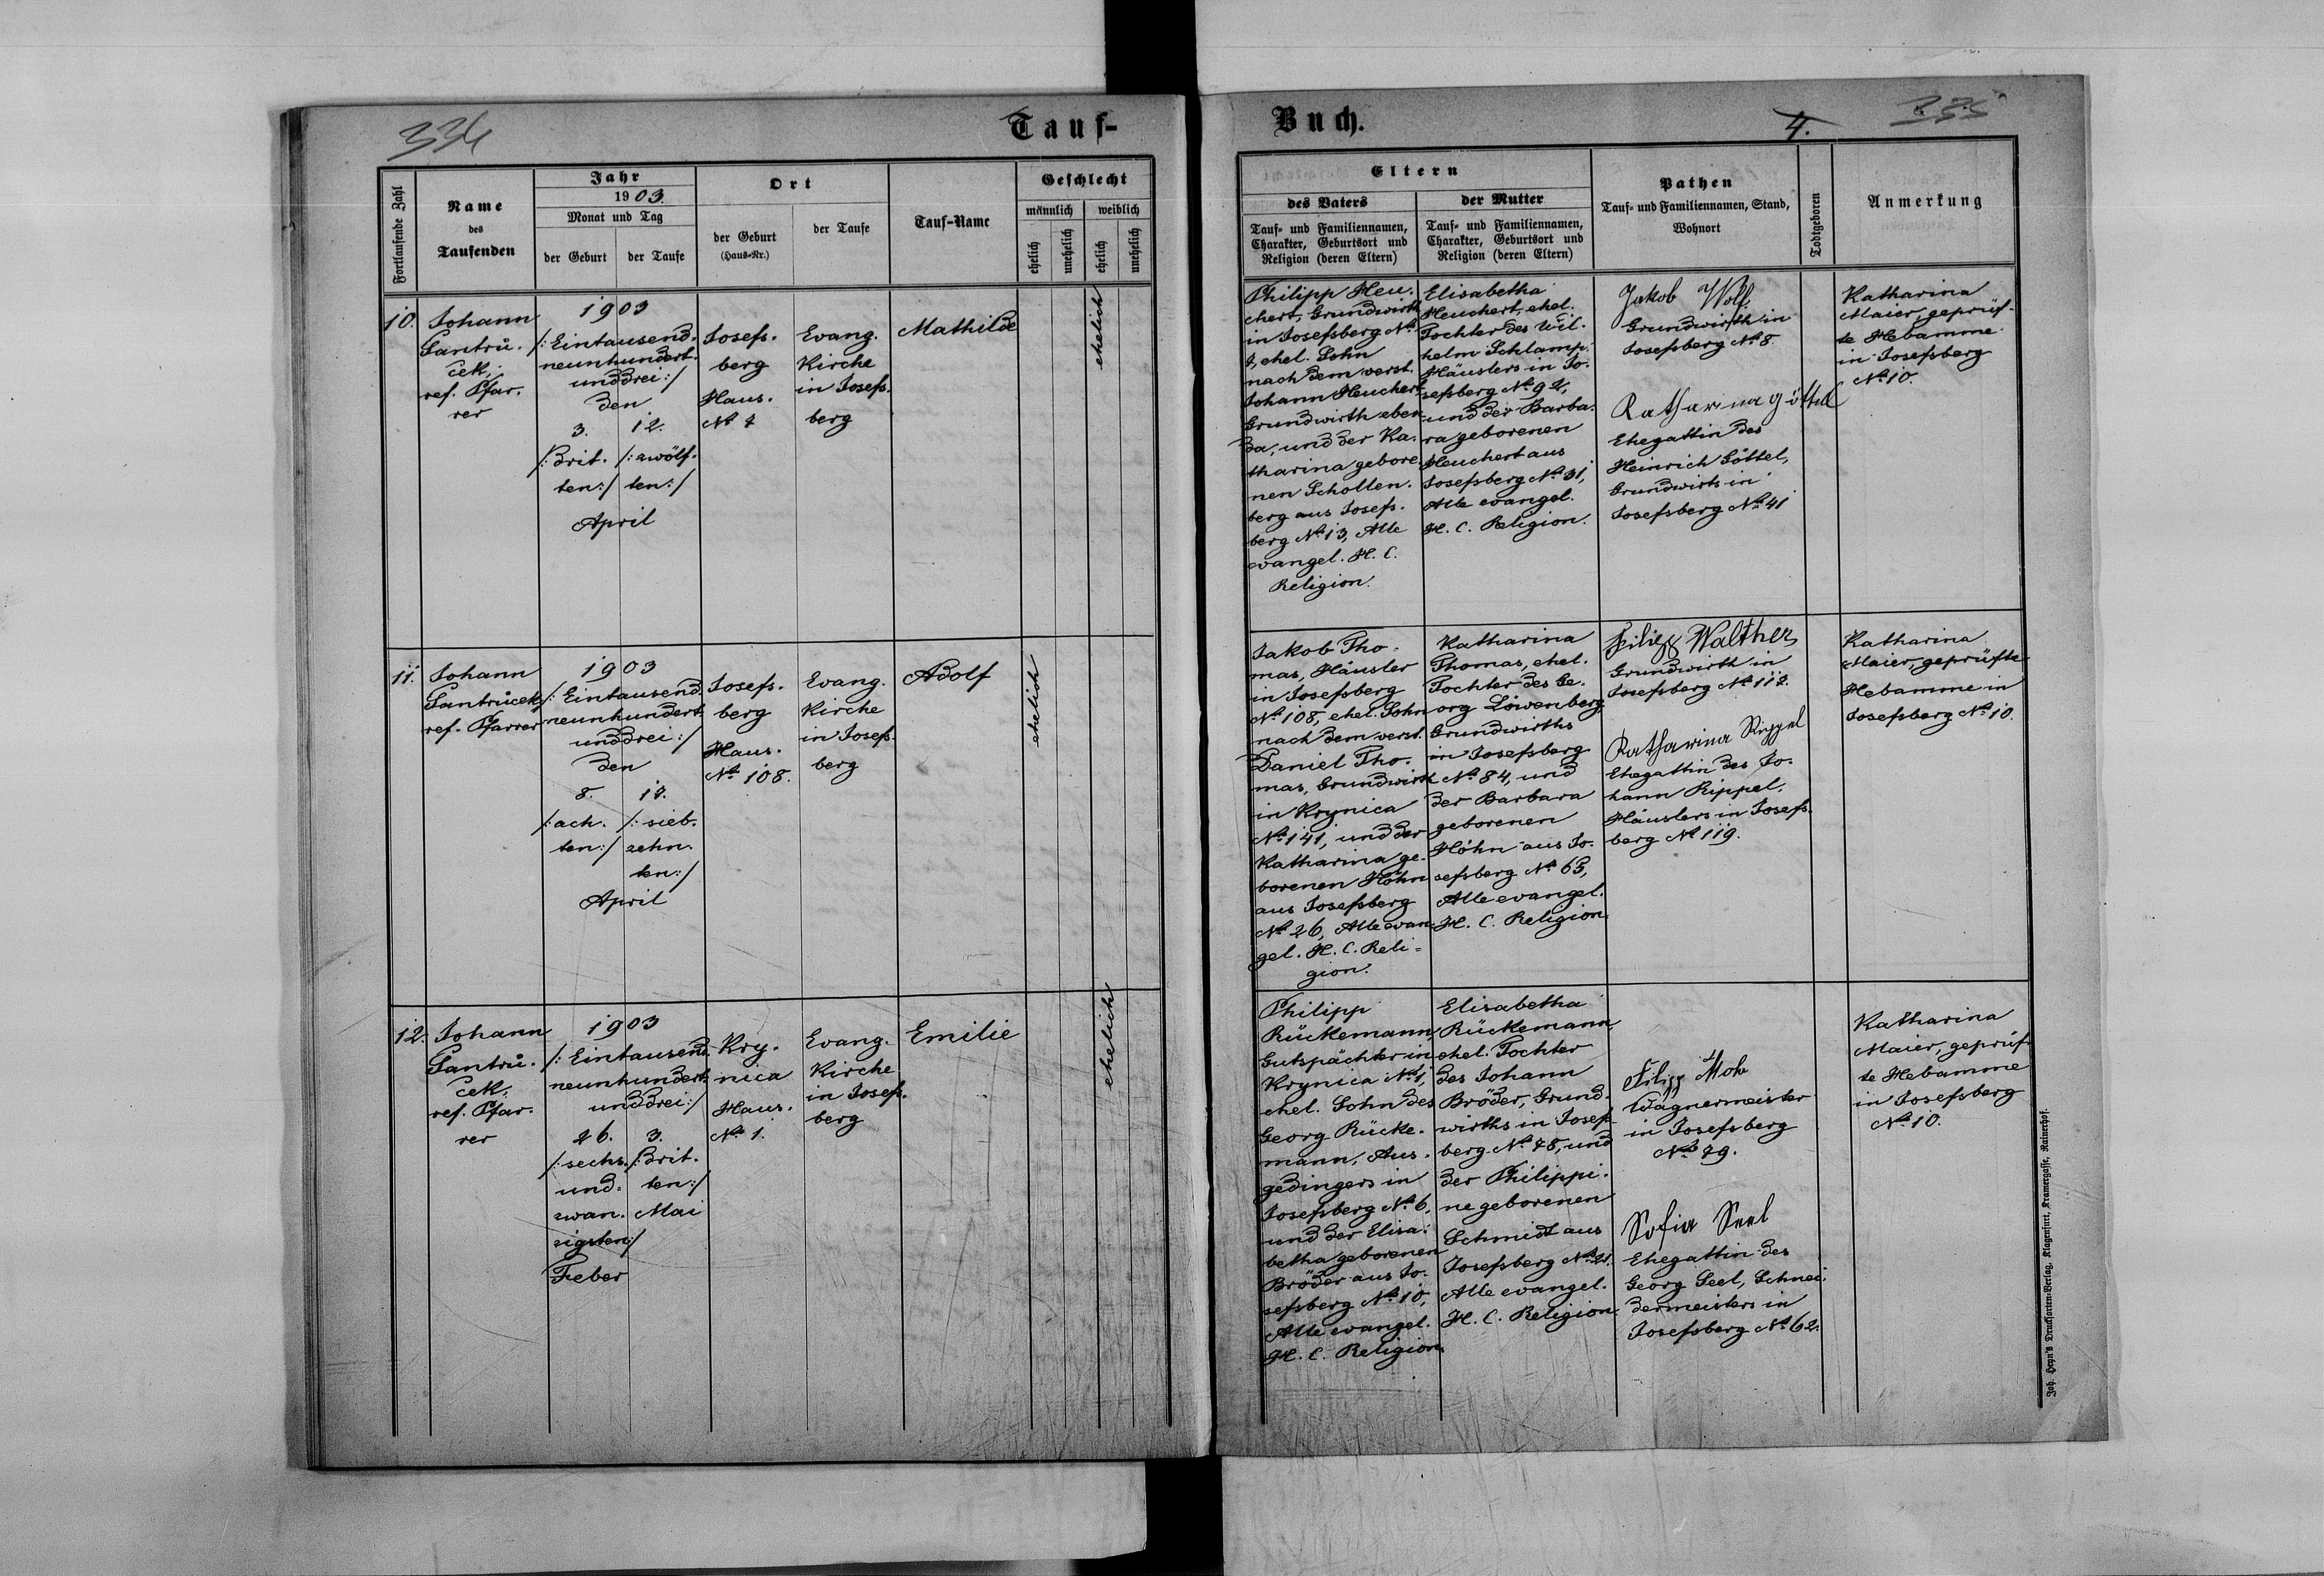 334
Tauf-
Fortlaufende Zahl
Name
des
Taufenden
Jahr
1903
Monat und Tag
der Geburt
der Taufe
Ort
der Geburt
(Haus-Nr.)
der Taufe
Tauf-Name
Geschlecht
männlich
weiblich
ehelich
unehelich
ehelich
unehelich
10.
Johann
Šantrů-
ček,
ref. Pfar-
rer
1903
/: Eintausend-
neunhundert-
unddrei :/
den
3.
/: drit-
ten :/
12.
/: zwölf-
ten :/
April
Josefs-
berg
Haus-
No 7
Evang.
Kirche
in Josefs-
berg
Mathilde
ehelich
11.
Johann
Šantrůček,
ref. Pfarrer
1903
/: Eintausend
neunhundert
unddrei :/
den
8.
/: ach-
ten :/
17.
/: sieb-
zehn-
ten :/
April
Josefs-
berg
Haus-
No 108.
Evang.
Kirche
in Josefs-
berg
Adolf
ehelich
12.
Johann
Šantrů-
ček,
ref. Pfar-
rer
1903
/: Eintausend-
neunhundert-
unddrei :/
26.
/: sechs-
und-
zwan-
zigsten :/
Feber
3.
/: drit-
ten :/
Mai
Kry-
nica
Haus-
No 1.
Evang.
Kirche
in Josefs-
berg
Emilie
ehelich
Buch.
4.
335
Eltern
des Vaters
Tauf- und Familiennamen,
Charakter, Geburtsort und
Religion (deren Eltern)
der Mutter
Tauf- und Familiennamen,
Charakter, Geburtsort und
Religion (deren Eltern)
Pathen
Tauf- und Familiennamen, Stand,
Wohnort
Todtgeboren
Anmerkung
Philipp Heu-
chert, Grundwirth
in Josefsberg No
7, ehel. Sohn
nach dem verst.
Johann Heuchert,
Grundwirth eben-
da, und der Ka-
tharina gebore-
nen Schollen-
berg aus Josefs-
berg No 13, Alle
evangel. H. C.
Religion.
Elisabetha
Heuchert, ehel.
Tochter des Wil-
helm Schlamp,
Häuslers in Jo-
sefsberg No 92,
und der Barba-
ra geborenen
Heuchert aus
Josefsberg No 31,
Alle evangel.
H. C. Religion.
Jakob Wolf,
Grundwirth in
Josefsberg No 8
Katharina Göttel
Ehegattin des
Heinrich Göttel,
Grundwirts in
Josefsberg No 41
Katharina
Maier, geprüf-
te Hebamme
in Josefsberg
No 10.
Jakob Tho-
mas, Häusler
in Josefsberg
No 108, ehel. Sohn
nach dem verst.
Daniel Tho-
mas, Grundwirth
in Krynica
No 141, und der
Katharina ge-
borenen Höhn
aus Josefsberg
No 26, Alle evan-
gel. H. C. Reli-
gion.
Katharina
Thomas, ehel.
Tochter des Ge-
org Löwenberg,
Grundwirths
in Josefsberg
No 84, und
der Barbara
geborenen
Höhn aus Jo-
sefsberg No 63,
Alle evangel.
H. C. Religion.
Filipp Walther,
Grundwirth in
Josefsberg No 117.
Katharina Rippel
Ehegattin des Jo-
hann Rippel,
Häuslers in Josefs-
berg No 119.
Katharina
Maier, geprüfte
Hebamme in
Josefsberg No 10.
Philipp
Rückemann,
Gutspächter in
Krynica No 1,
ehel. Sohn des
Georg Rücke-
mann, Aus-
gedingers in
Josefsberg No 6,
und der Elisa-
betha geborenen
Bröder aus Jo-
sefsberg No 10,
Alle evangel.
H. C. Religion.
Elisabetha
Rückemann,
ehel. Tochter
des Johann
Bröder, Grund-
wirths in Josefs-
berg No 78, und
der Philippi-
ne geborenen
Schmidt aus
Josefsberg No 21.
Alle evangel.
H. C. Religion.
Filipp Mohr
Wagnermeister
in Josefsberg
No 79.
Sofia Seel
Ehegattin des
Georg Seel, Schnei-
dermeisters in
Josefsberg No 62.
Katharina
Maier, geprüf-
te Hebamme
in Josefsberg
No 10.
Joh. Heyn's Drucksorten-Verlag, Klagenfurt, Kramergasse, Rainerhof.